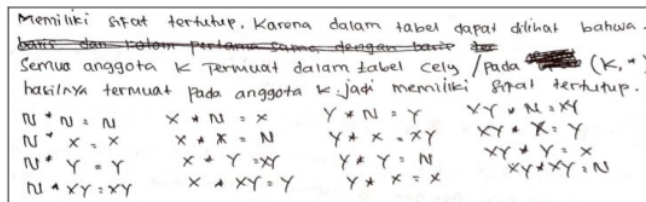 Memiliki sifat tertutup. Karena dalam tabel dapat dilihat bahwa.
baris dan kolom pertama sama dengan baris
Semua anggota K Termuat dalam tabel cely / Pada (K, *)
hasilnya termuat pada anggota K. jadi memiliki sifat tertutup.
N * N = N X * N = X Y * N = Y XY * N = XY
N * X = X X * X = N Y * X = XY XY * X = Y
N * Y = Y X * Y = XY Y * Y = N XY * Y = X
N * XY = XY X * XY = Y Y * X = X XY * XY = N